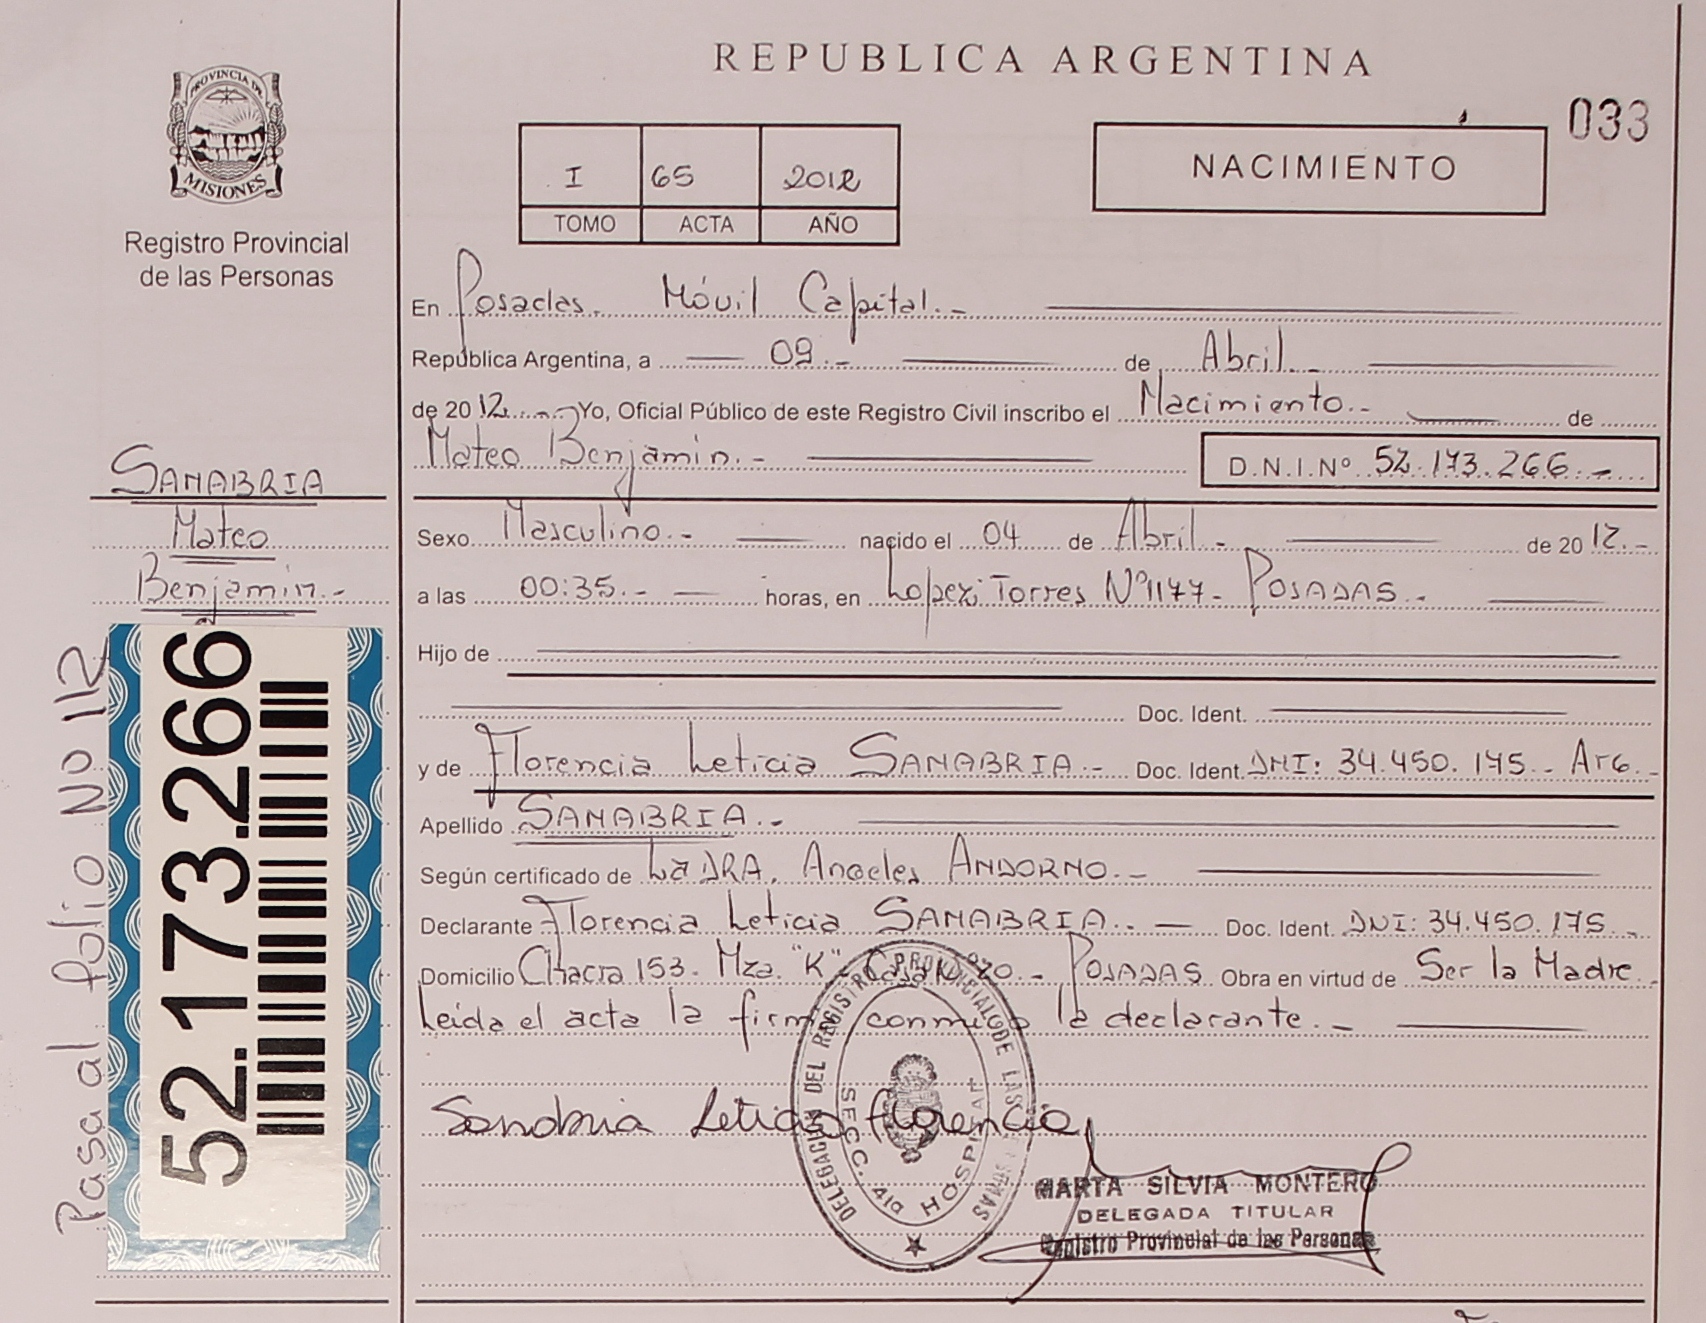 REPUBLICA ARGENTINA
033
PROVINCIA DE
MISIONES
Registro Provincial
de las Personas
I 65 2012
TOMO ACTA AÑO
NACIMIENTO
En Posadas. Móvil Capital.-
República Argentina, a 09.- de Abril.-
de 2012.- Yo, Oficial Público de este Registro Civil inscribo el Nacimiento.- de
Mateo Benjamin.- D.N.I.Nº 52.173.266.-
SANABRIA
Mateo
Benjamin.-
Sexo Masculino.- nacido el 04 de Abril.- de 2012.-
a las 00:35.- horas, en Lopez Torres Nº1177- POSADAS.-
Hijo de
Doc. Ident.
y de Florencia Leticia SANABRIA.- Doc. Ident. DNI: 34.450.175.- ARG.-
Apellido SANABRIA.-
Según certificado de La DRA. Angeles ANDORNO.-
Declarante Florencia Leticia SANABRIA.- Doc. Ident. DNI: 34.450.175.-
Domicilio Chacra 153. Mza. "K"- Casa POSADAS. Obra en virtud de Ser la Madre
Leída el acta la firma conmigo la declarante.-
Sanabria Leticia florencia
DELEGACION DEL REGISTRO PROVINCIAL DE LAS PERSONAS
SECC. 4ta HOSPITAL
MARTA SILVIA MONTERO
DELEGADA TITULAR
Registro Provincial de las Personas
52.173.266
Pasa al folio No 112